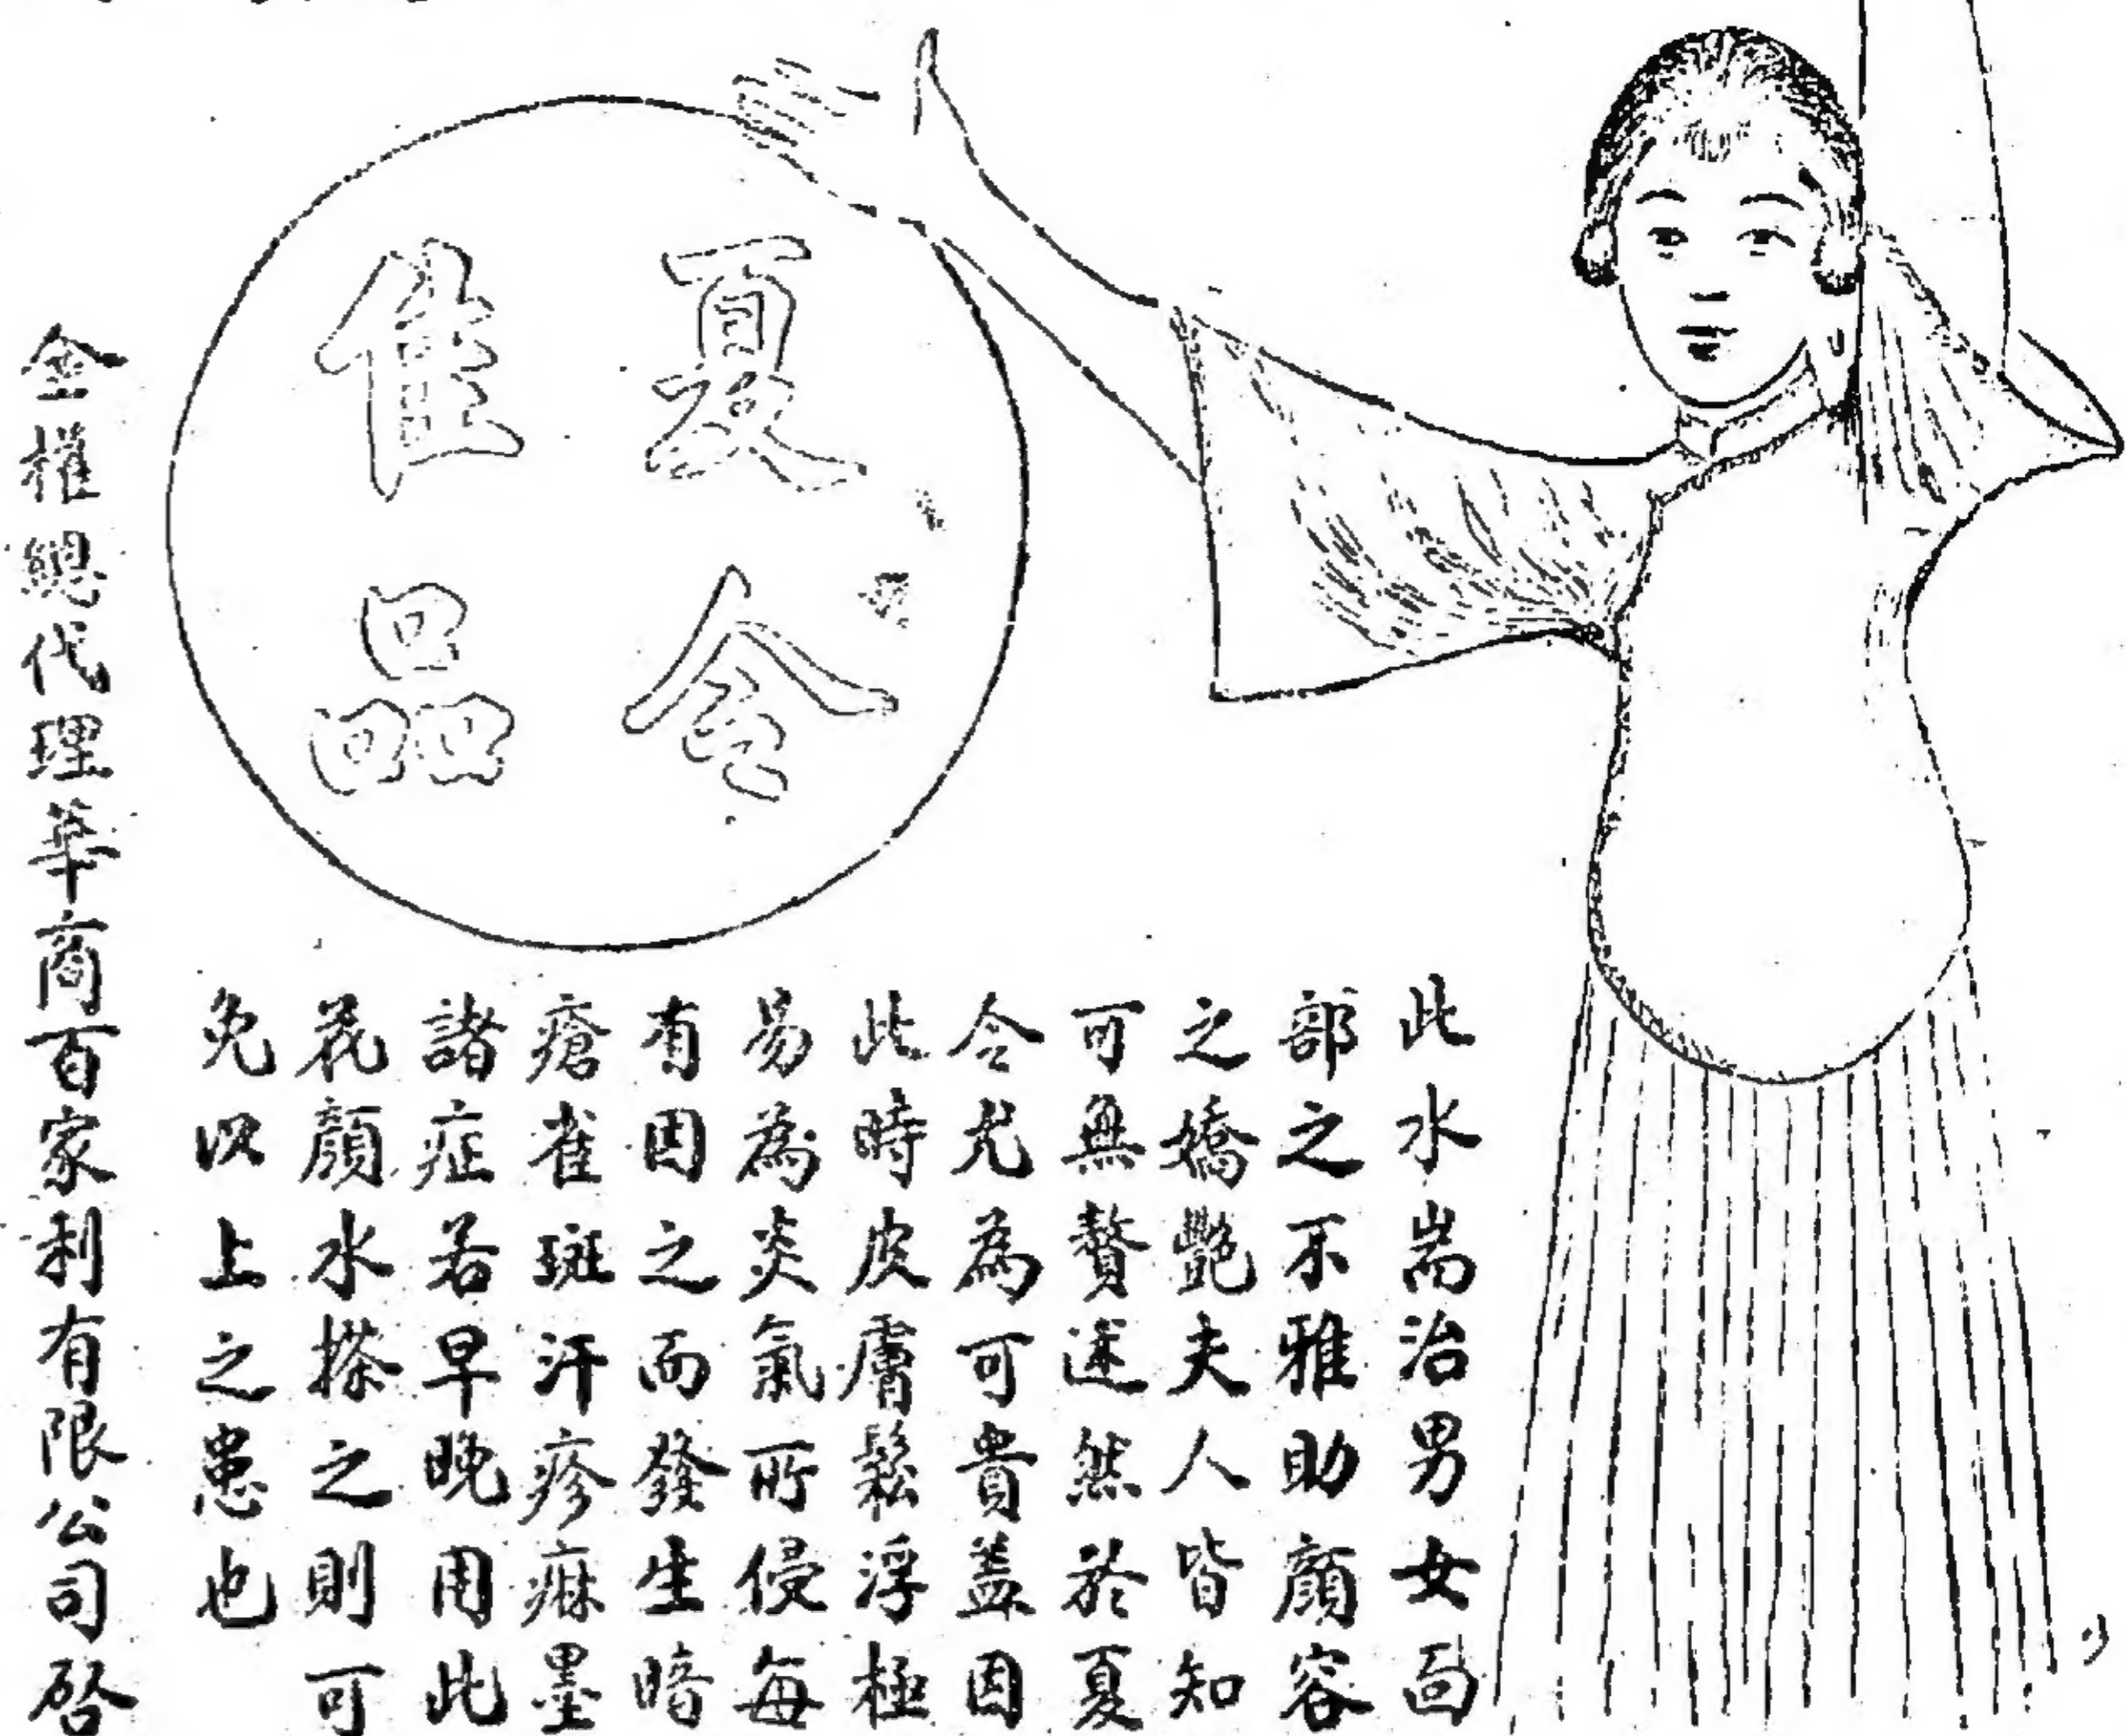 夏令
佳品
此水耑治男女面
部之不雅助顏容
之嬌艷夫人皆知
可無贅述然於夏
令尤為可貴蓋因
此時皮膚鬆浮極
易為炎氣所侵每
有因之而發生暗
瘡雀斑汗疹痳墨
諸症若早晚用此
花顏水搽之則可
免以上之患也
全權總代理華商百家利有限公司啓